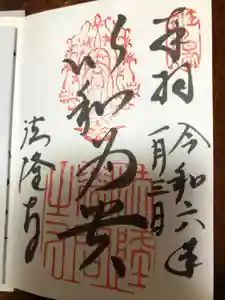 奉拝
令和六年
一月三日
以和為貴
法隆寺